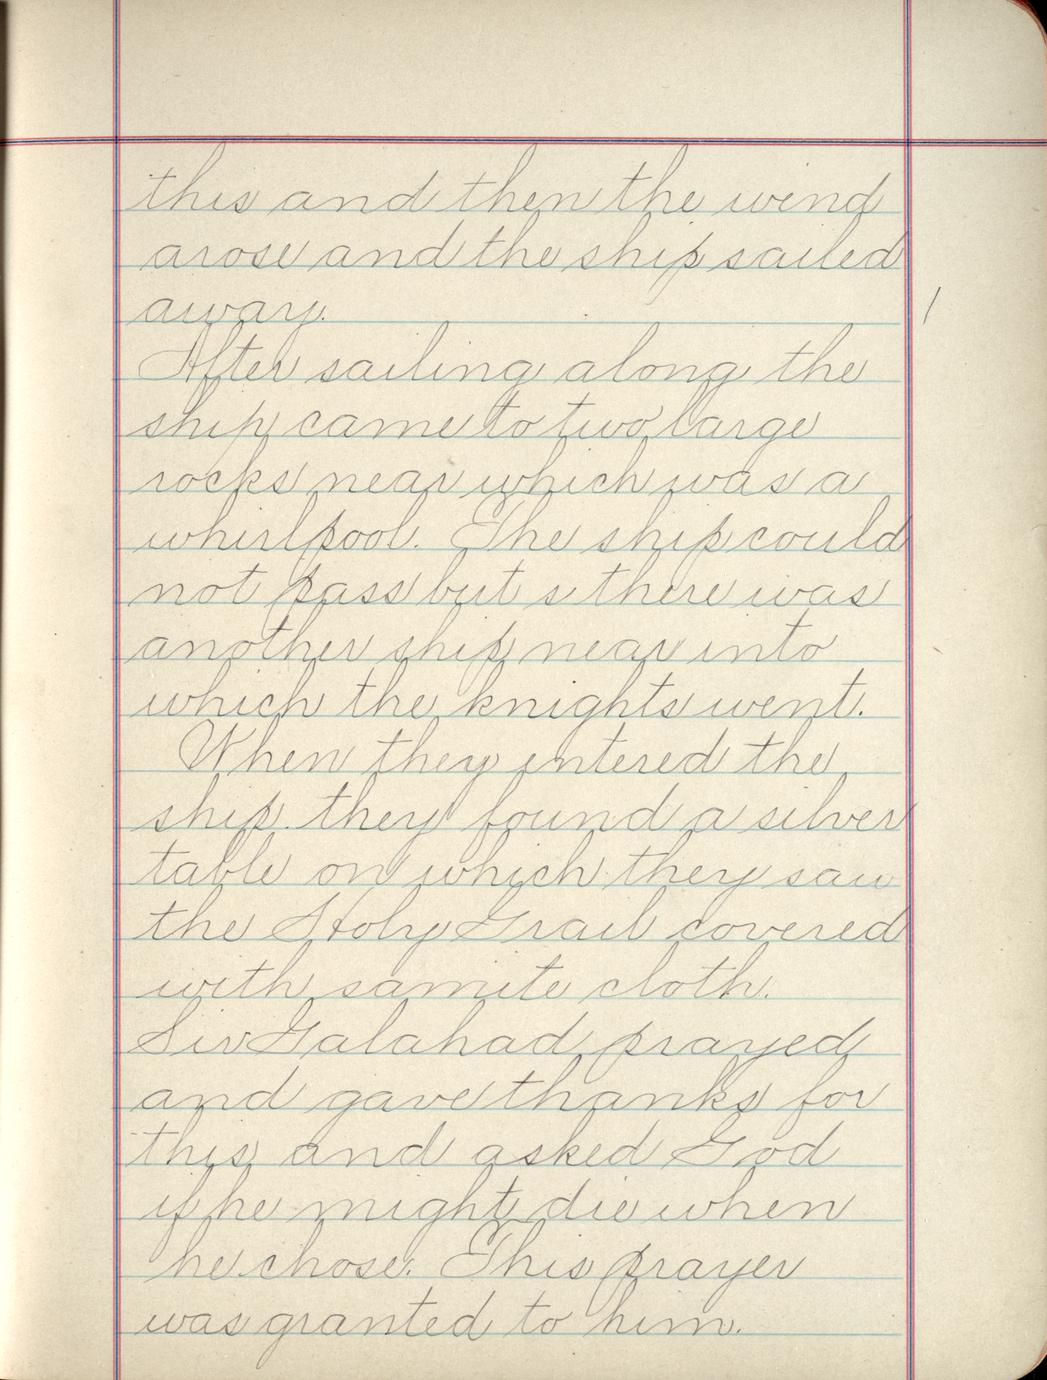 this and then the wind
arose and the ship sailed
away.
After sailing along the
ship came to two large
rocks near which was a
whirlpool. The ship could
not pass but s there was
another ship near into
which the knights went.
When they entered the
ship they found a silver
table on which they saw
the Holy Grail covered
with samite cloth.
Sir Galahad prayed
and gave thanks for
this and asked God
if he might die when
he chose. This prayer
was granted to him.